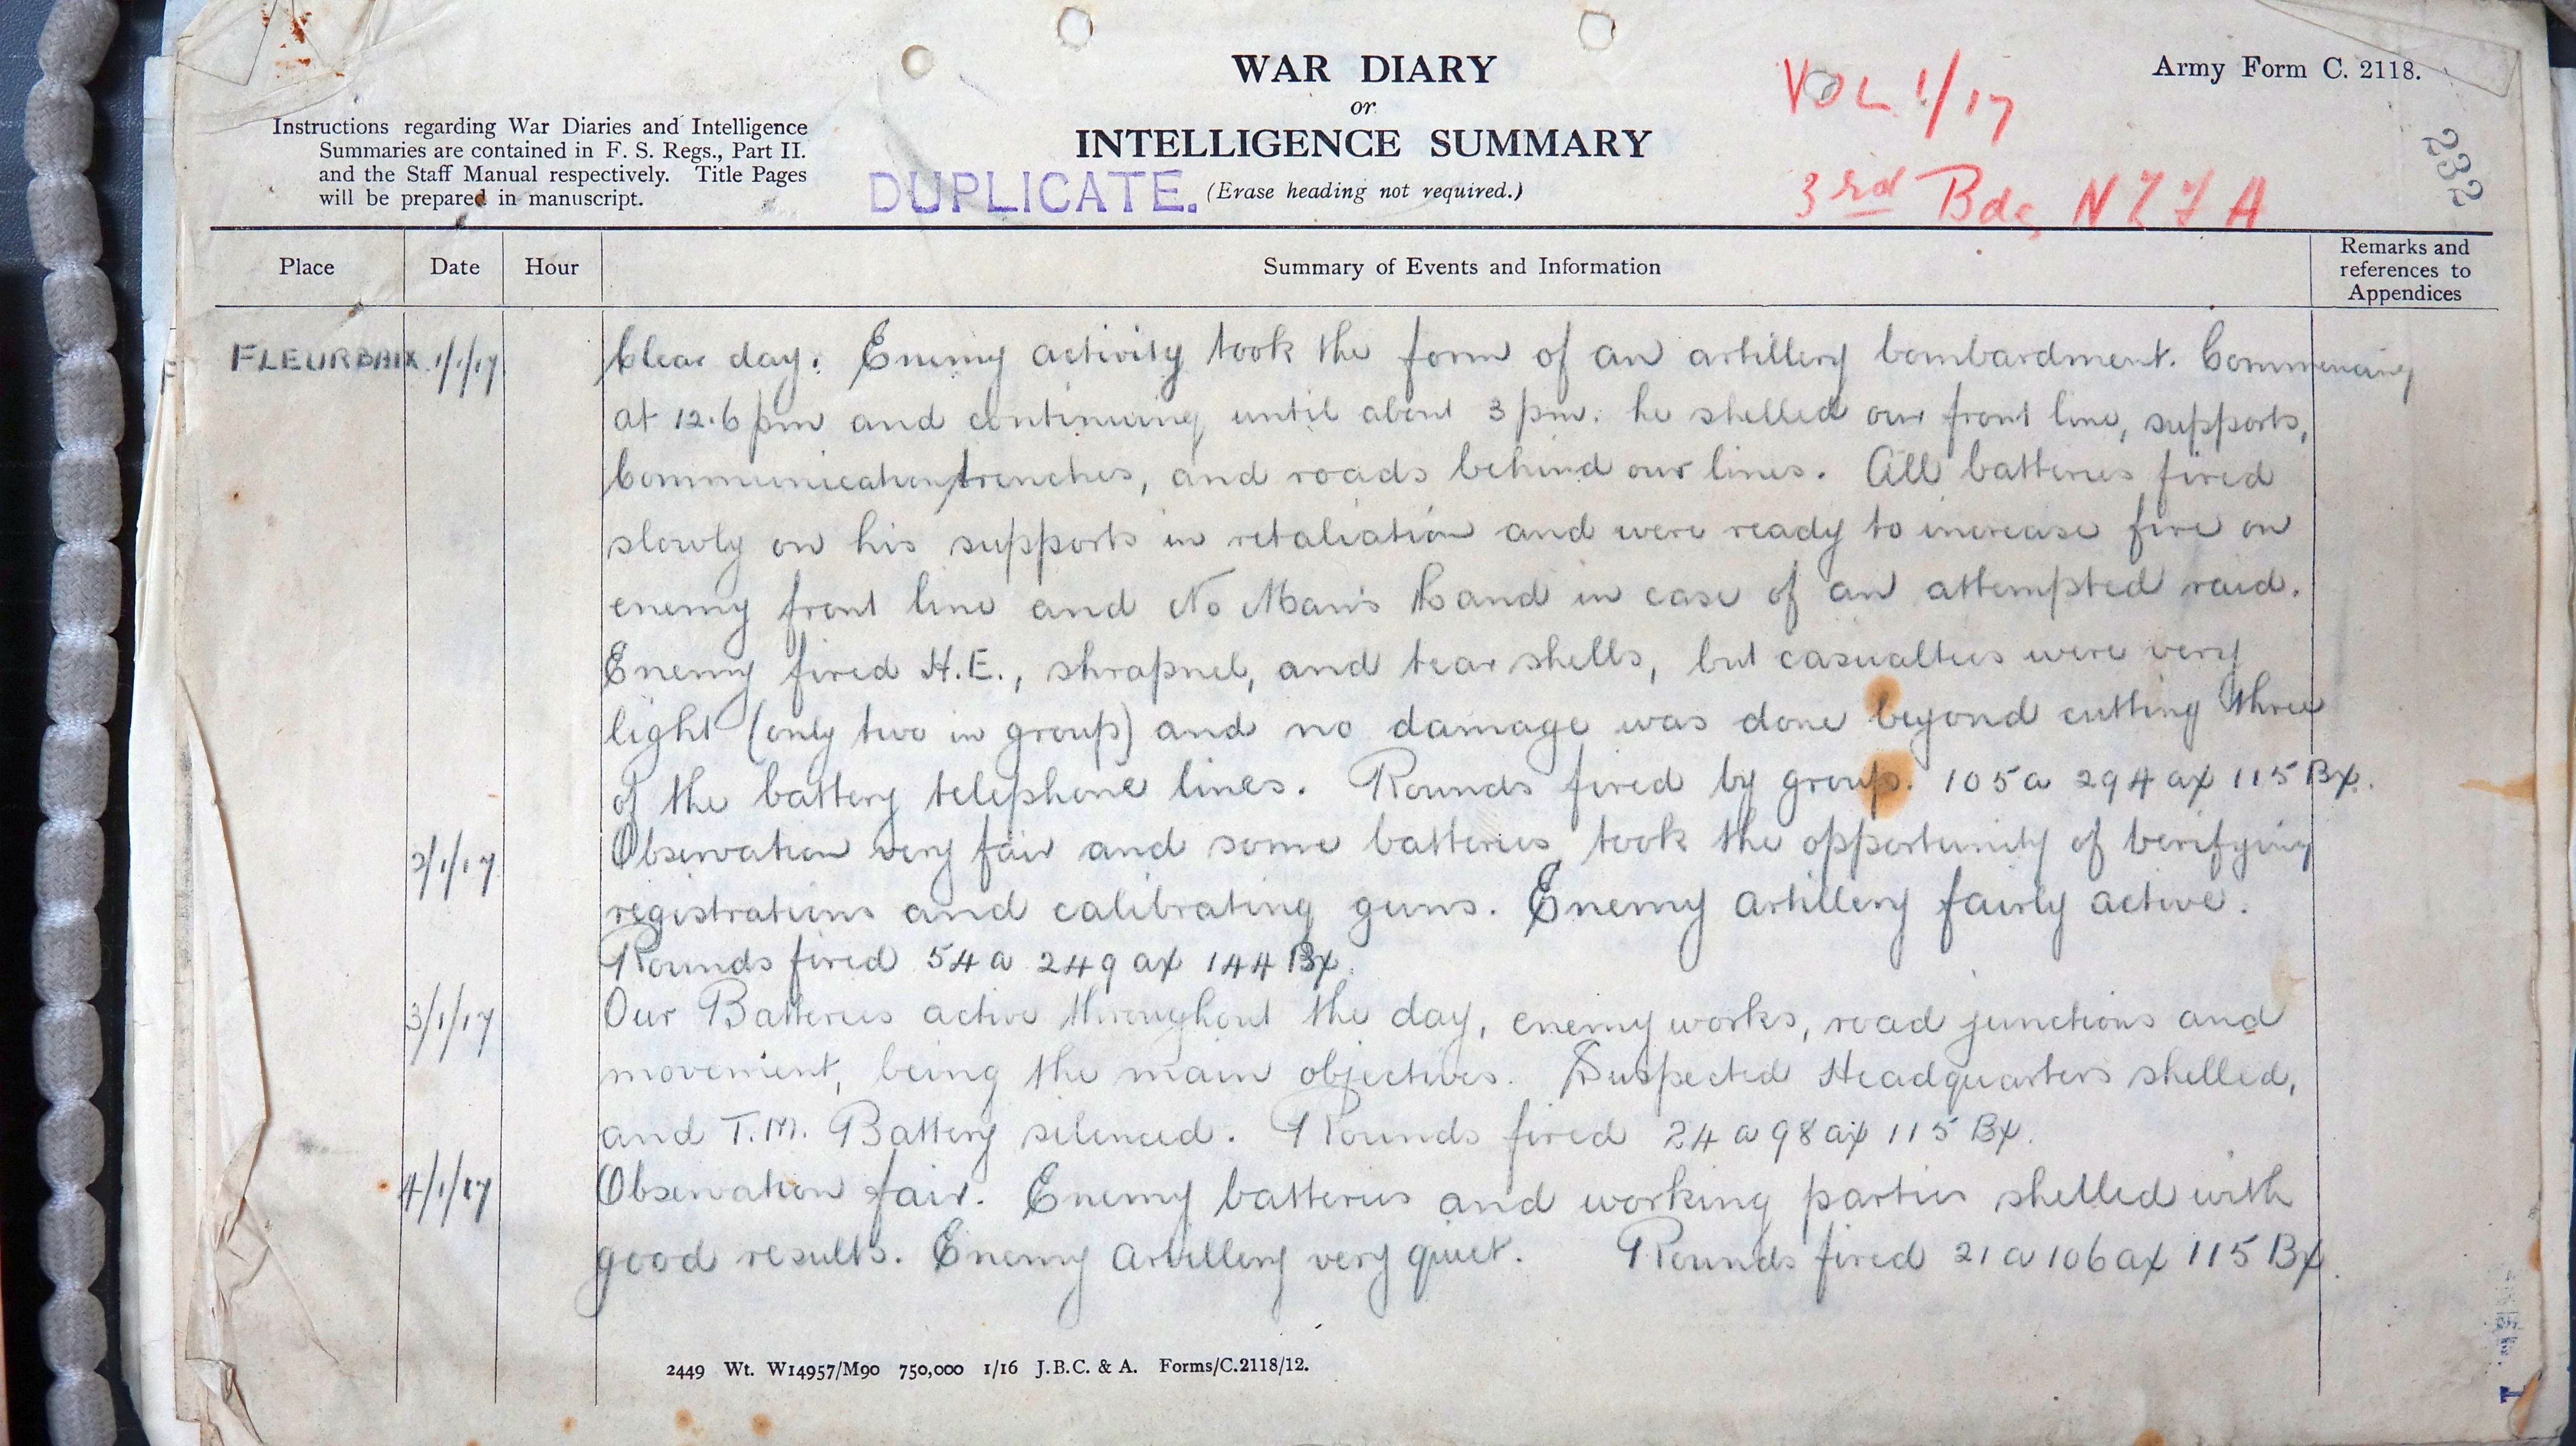 WAR DIARY
or
INTELLIGENCE SUMMARY
(Erase heading not required.)
Army Form C. 2118.
Instructions regarding War Diaries and Intelligence
Summaries are contained in F. S. Regs., Part II.
and the Staff Manual respectively. Title Pages
will be prepared in manuscript.
DUPLICATE.
VOL 1/17
3rd Bde NZFA
232
Place Date Hour Summary of Events and Information Remarks and
references to
Appendices
FLEURBAIX 1/1/17 Clear day. Enemy activity took the form of an artillery bombardment. Commencing
at 12.6 pm and continuing until about 3 pm. he shelled our front line, supports,
Communication trenches, and roads behind our lines. All batteries fired
slowly on his supports in retaliation and were ready to increase fire on
enemy front line and No Man's Land in case of an attempted raid.
Enemy fired H.E., shrapnel, and tear shells, but casualties were very
light (only two in group) and no damage was done beyond cutting three
of the battery telephone lines. Rounds fired by group. 105 a 294 ax 115 Bx.
2/1/17 Observation very fair and some batteries took the opportunity of verifying
registrations and calibrating guns. Enemy artillery fairly active.
Rounds fired 54 a 249 ax 144 Bx.
3/1/17 Our Batteries active throughout the day, enemy works, road junctions and
movement, being the main objectives. Suspected Headquarters shelled,
and T.M. Battery silenced. Rounds fired 24 a 98 ax 115 Bx.
4/1/17 Observation fair. Enemy batteries and working parties shelled with
good results. Enemy artillery very quiet. Rounds fired 21 a 106 ax 115 Bx.
2449 Wt. W14957/M90 750,000 1/16 J.B.C. & A. Forms/C.2118/12.